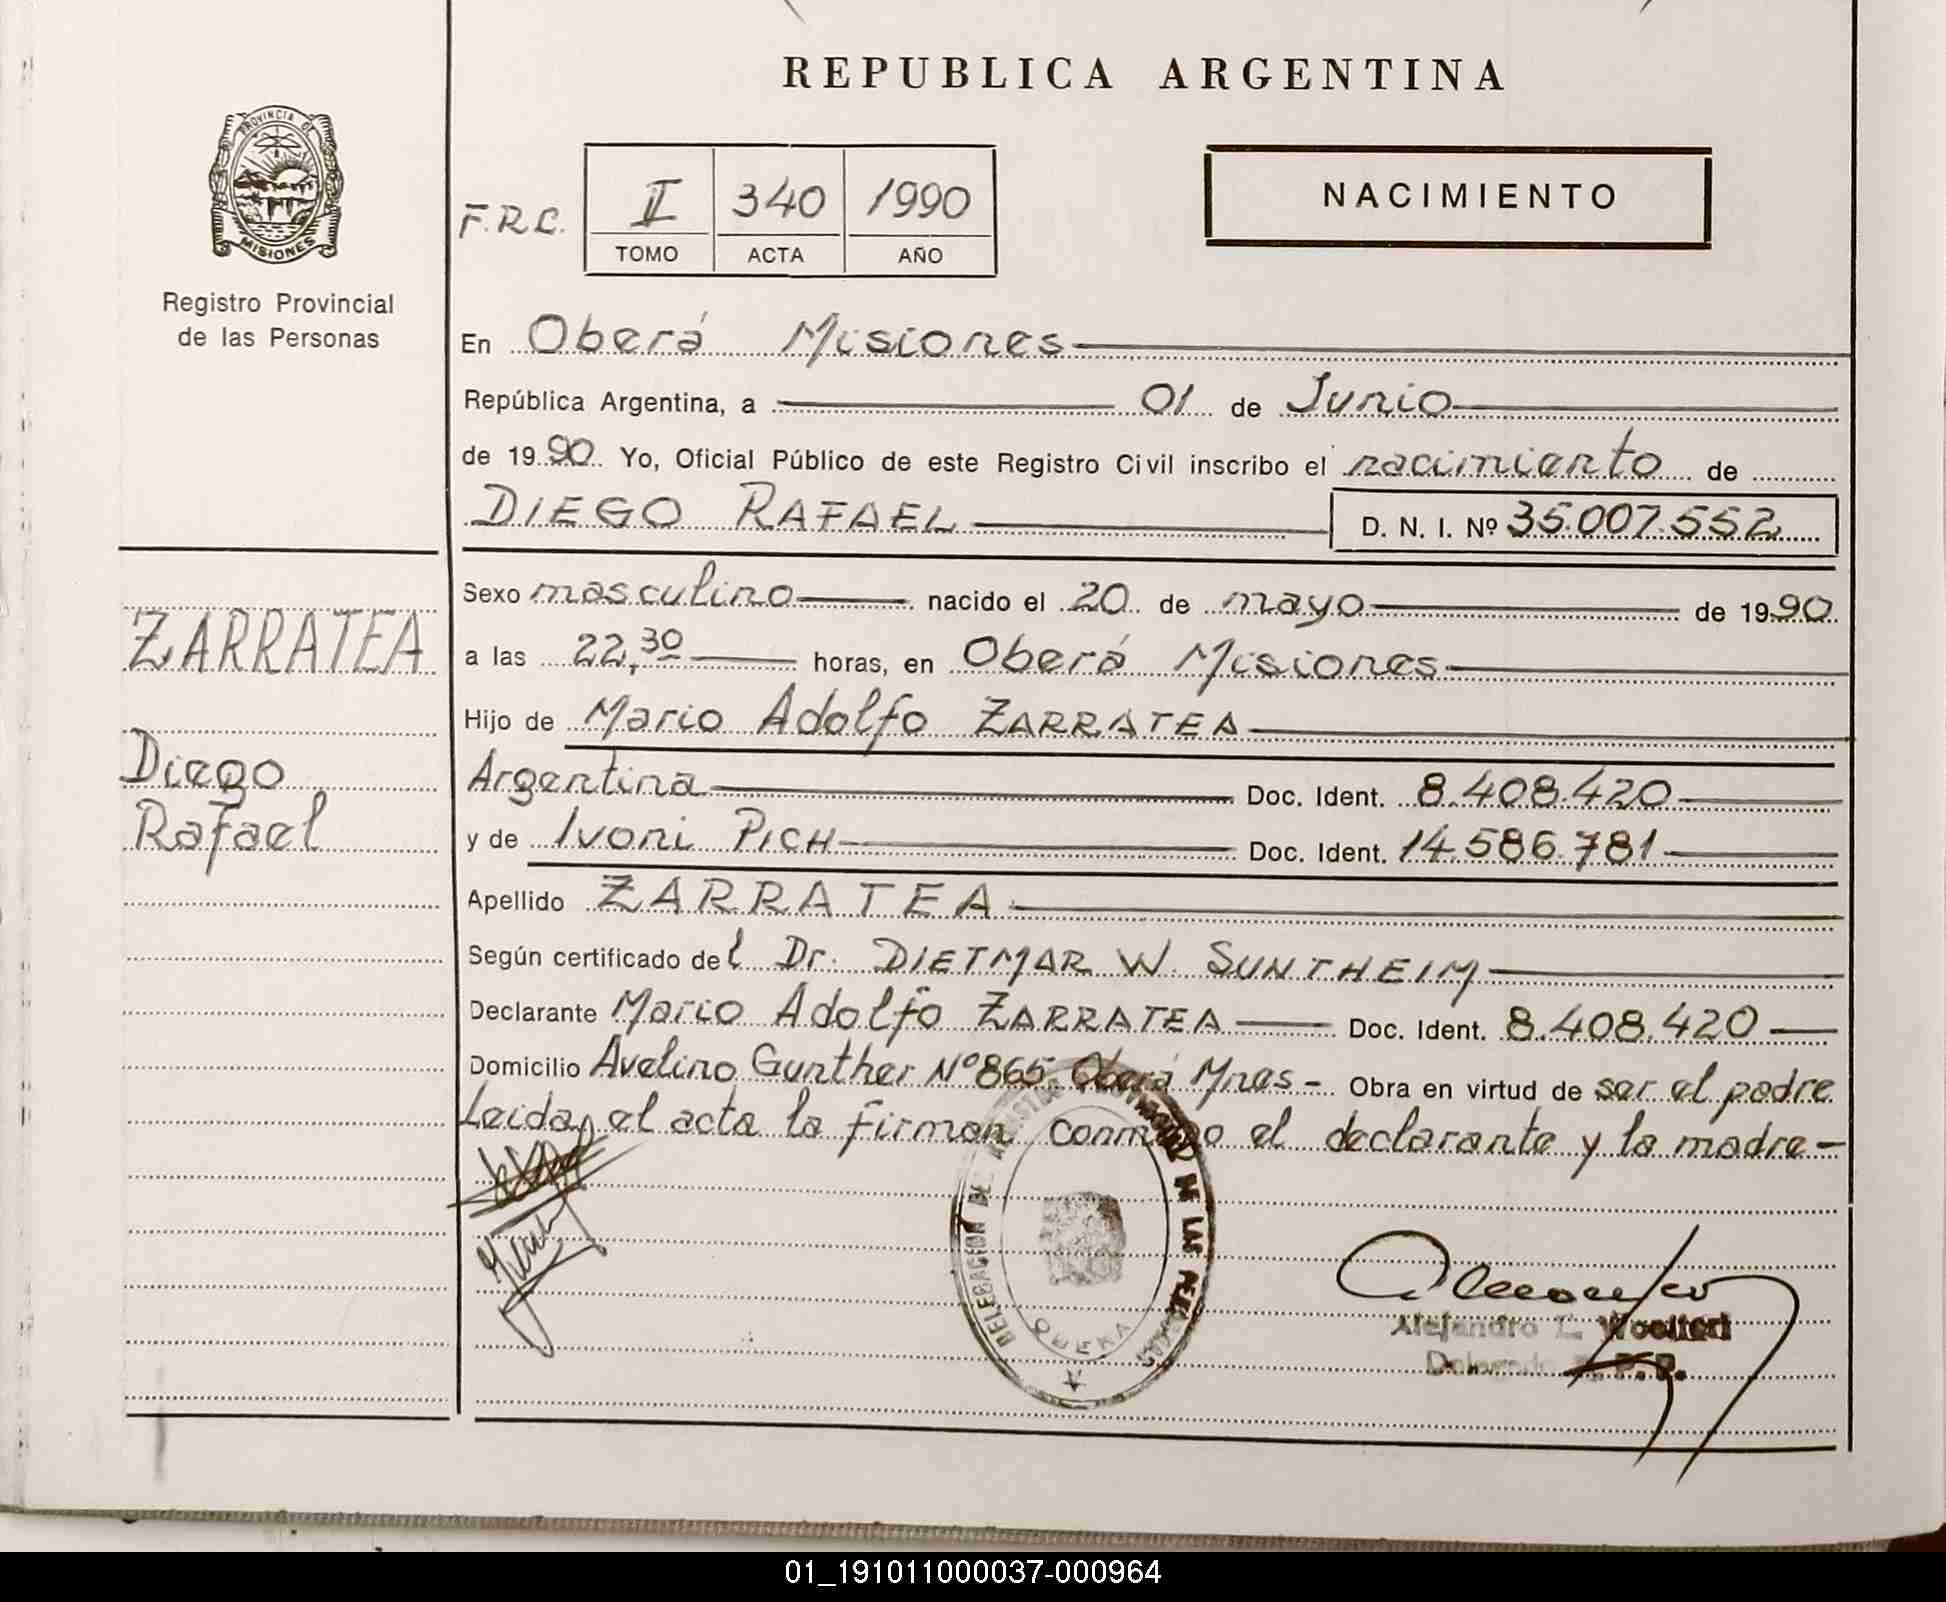 REPUBLICA ARGENTINA
PROVINCIA DE
MISIONES
Registro Provincial
de las Personas
F.R.C.
II 340 1990
TOMO ACTA AÑO
NACIMIENTO
En Oberá Misiones
República Argentina, a 01 de Junio
de 1990 Yo, Oficial Público de este Registro Civil inscribo el nacimiento de
DIEGO RAFAEL D. N. I. Nº 35.007.552
ZARRATEA
Diego
Rafael
Sexo masculino nacido el 20 de mayo de 1990
a las 22,30 horas, en Oberá Misiones
Hijo de Mario Adolfo ZARRATEA
Argentina Doc. Ident. 8.408.420
y de Ivoni PICH Doc. Ident. 14.586.781
Apellido ZARRATEA
Según certificado del Dr. DIETMAR W. SUNTHEIM
Declarante Mario Adolfo ZARRATEA Doc. Ident. 8.408.420
Domicilio Avelino Gunther Nº 865 Oberá Mnes - Obra en virtud de ser el padre
Leida el acta la firman conmigo el declarante y la madre -
DELEGACION DEL REGISTRO PROVINCIAL DE LAS PERSONAS
OBERA
Alejandro
Delegado R. P. P.
01_191011000037-000964